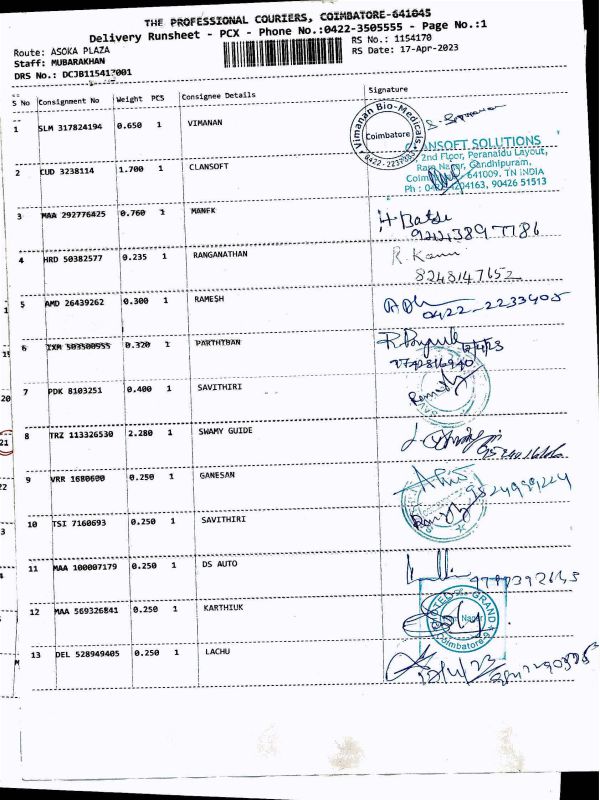 THE PROFESSIONAL COURIERS, COIMBATORE-641045
Delivery Runsheet - PCX - Phone No.:0422-3505555 - Page No.:1
Route: ASOKA PLAZA
RS No.: 1154170
Staff: MUBARAKHAN
RS Date: 17-Apr-2023
DRS No.: DCJB115417001
S No Consignment No Weight PCS Consignee Details Signature
1 SLM 317824194 0.650 1 VIMANAN
Vimanan Bio-Medicals
Coimbatore
2 CUD 3238114 1.700 1 CLANSOFT
ANSOFT SOLUTIONS
2nd Floor, Peranaidu Layout,
Ram Nagar, Gandhipuram,
641009. TN INDIA
204163, 90426 51513
3 MAA 292776425 0.760 1 MANEK
4 HRD 50382577 0.235 1 RANGANATHAN
8248147652
5 AMD 26439262 0.300 1 RAMESH
0422-2233405
6 IXM 503500955 0.320 1 PARTHYBAN
7 PDK 8103251 0.400 1 SAVITHIRI
8 TRZ 113326530 2.280 1 SWAMY GUIDE
9 VRR 1680600 0.250 1 GANESAN
10 TSI 7160693 0.250 1 SAVITHIRI
11 MAA 100007179 0.250 1 DS AUTO
12 MAA 569326841 0.250 1 KARTHIUK
GRAND
Nagar
Coimbatore-9
13 DEL 528949405 0.250 1 LACHU
20
21
22